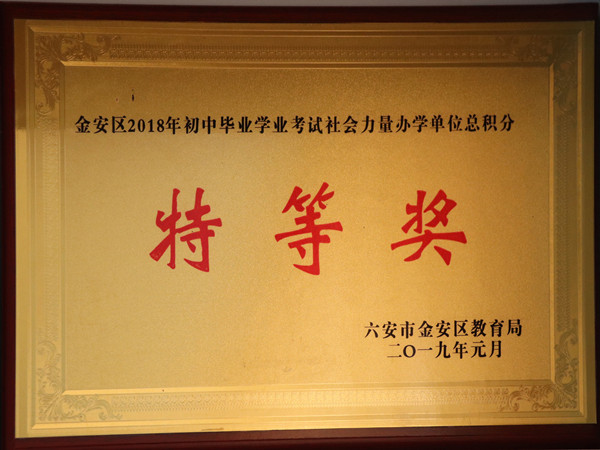 金安区2018年初中毕业学业考试社会力量办学单位总积分
特等奖
六安市金安区教育局
二〇一九年元月